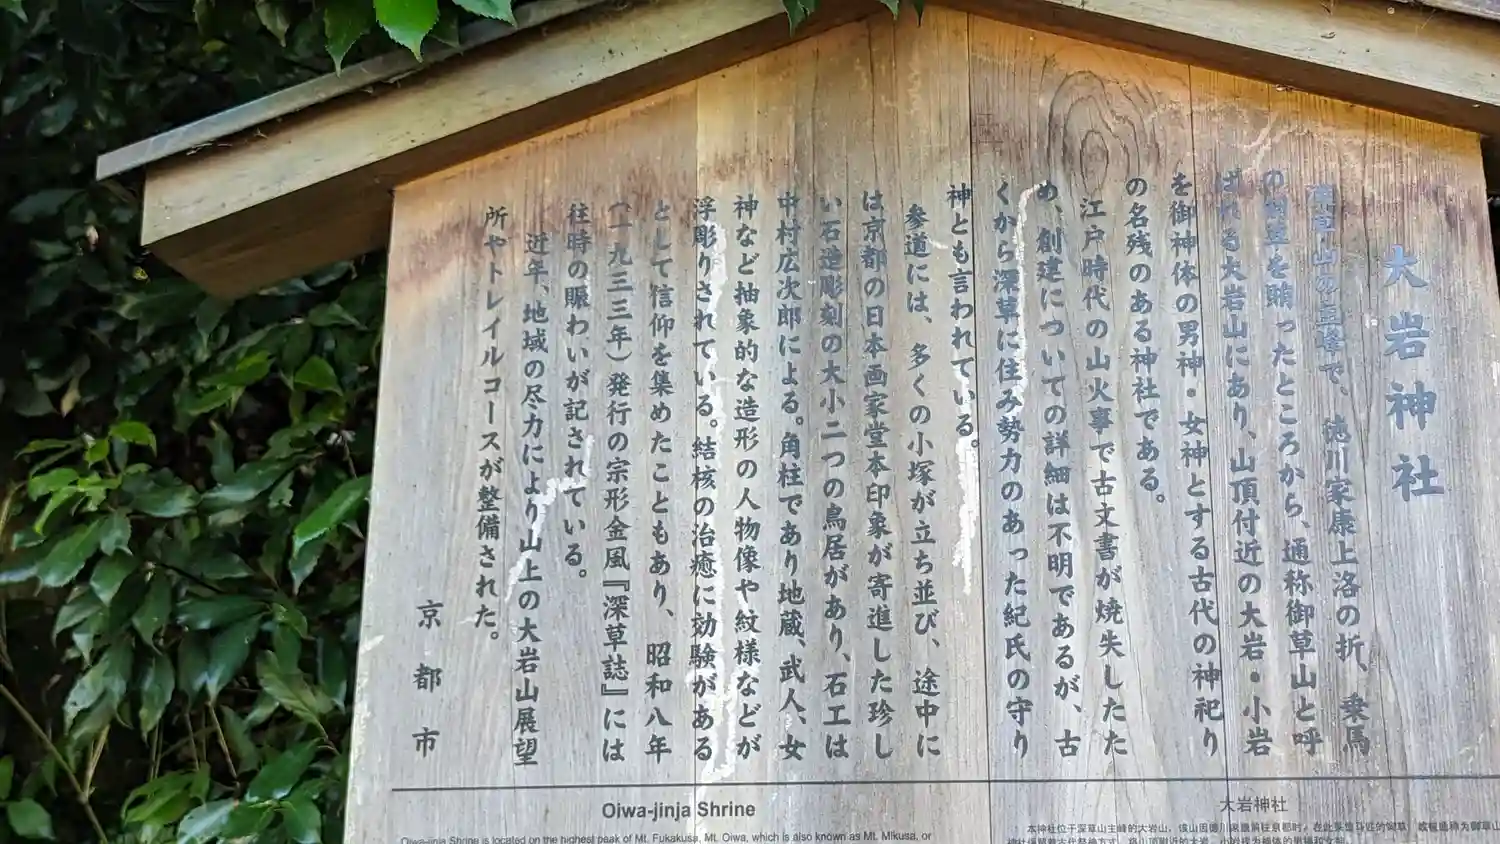 大岩神社
深草山の主峰で、徳川家康上洛の折、乗馬
の御草を賄ったところから、通称御草山と呼
ばれる大岩山にあり、山頂付近の大岩・小岩
を御神体の男神・女神とする古代の神祀り
の名残のある神社である。
江戸時代の山火事で古文書が焼失したた
め、創建についての詳細は不明であるが、古
くから深草に住み勢力のあった紀氏の守り
神とも言われている。
参道には、多くの小塚が立ち並び、途中に
は京都の日本画家堂本印象が寄進した珍し
い石造彫刻の大小二つの鳥居があり、石工は
中村広次郎による。角柱であり地蔵、武人、女
神など抽象的な造形の人物像や紋様などが
浮彫りされている。結核の治癒に効験がある
として信仰を集めたこともあり、昭和八年
（一九三三年）発行の宗形金風『深草誌』には
往時の賑わいが記されている。
近年、地域の尽力により山上の大岩山展望
所やトレイルコースが整備された。
京都市
Oiwa-jinja Shrine
Oiwa-jinja Shrine is located on the highest peak of Mt. Fukakusa, Mt. Oiwa, which is also known as Mt. Mikusa, or
大岩神社
本神社位于深草山主峰的大岩山，